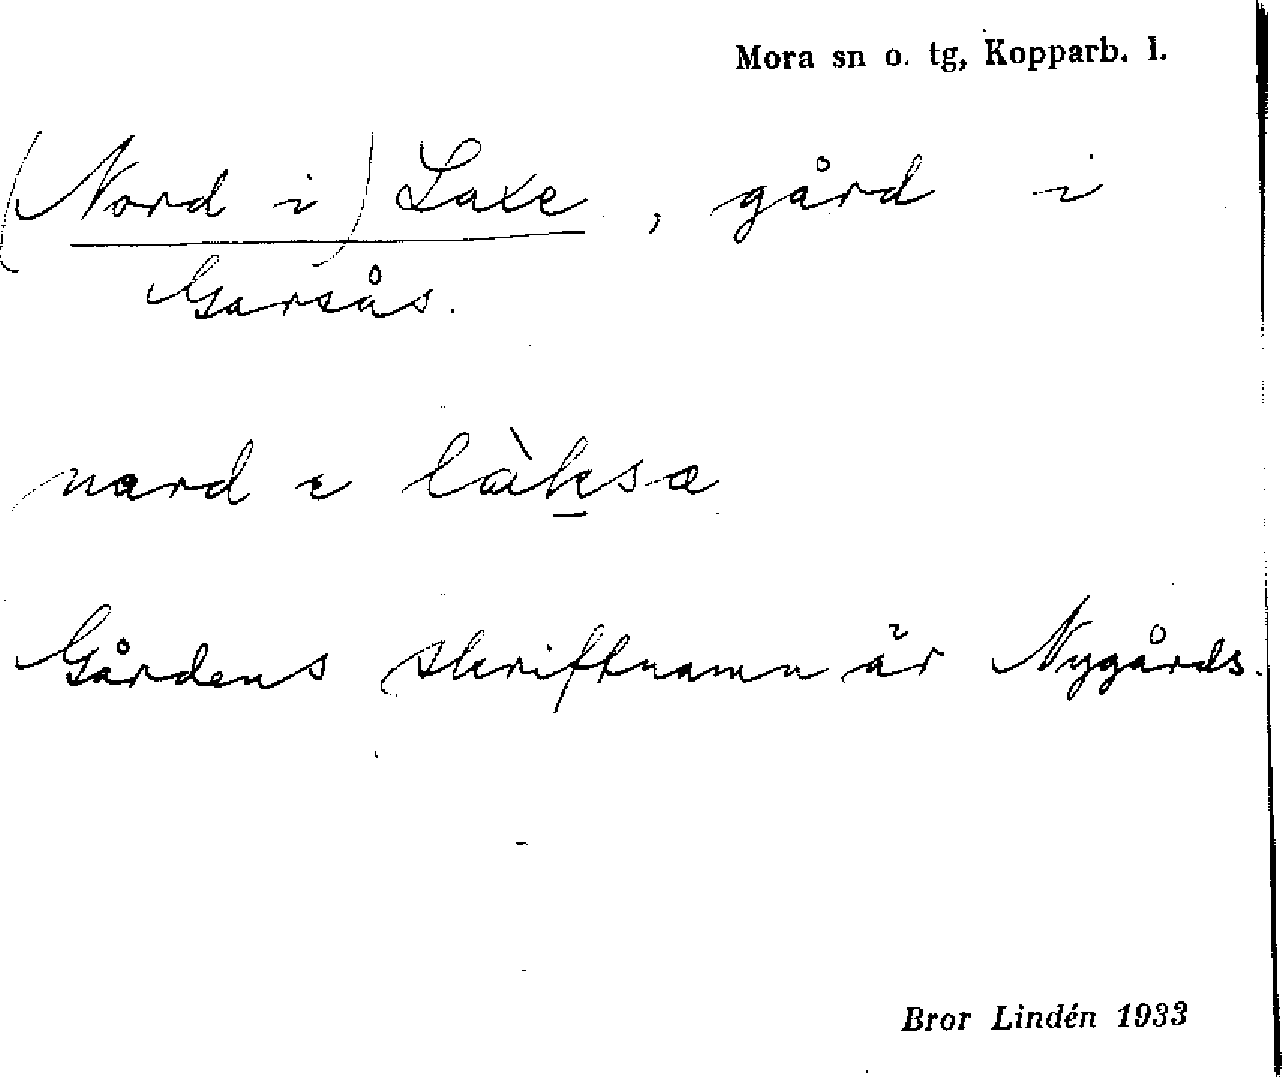 Mora sn o. tg, Kopparb. l.
(Nord i) Laxe, gård i
Garsås.
nard e làksa
Gårdens skriftnamn är Nygårds.
Bror Lindén 1933